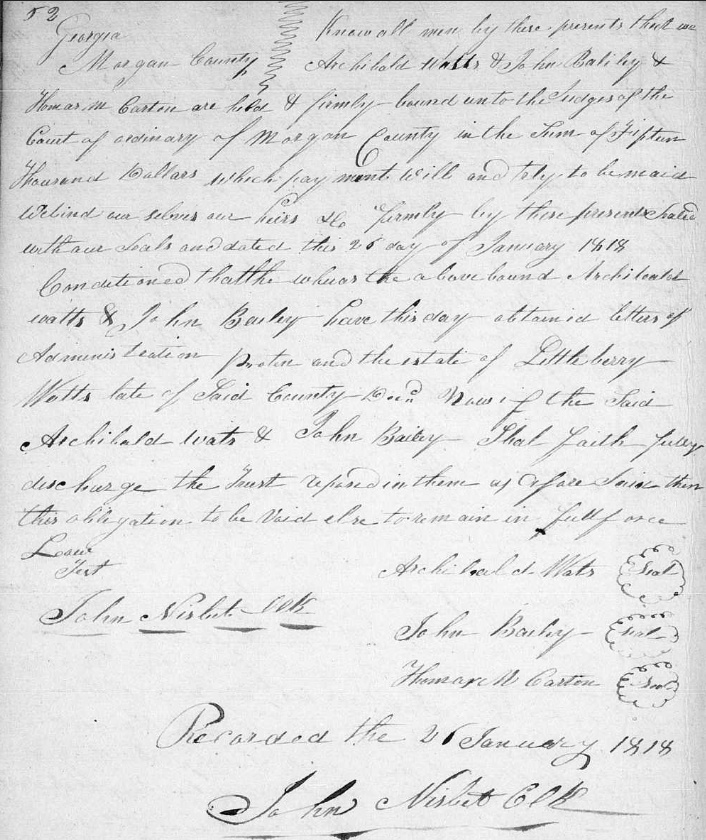 53
Georgia
Know all men by these presents that we
Morgan County Archibald Watts & John Bailey &
Thomas M Carton are held & firmly bound unto the Judges of the
Court of ordinary of Morgan County in the Sum of Fifteen
Thousand Dollars which pay ment Will and trly to be maid
We bind our selves our heirs &c firmly by these presents Seald
with our Seals and dated this 26 day of January 1818
Conditioned that the wheras the above bound Archibald
watts & John Bailey have this day obtained letters of
Administration protin and the estate of Littleberry
Watts late of Said County Decd Now if the Said
Archibald wats & John Bailey Shal faith fully
discharge the Trust reposd in them as afore Said then
this obligation to be Void else to remain in full force
Test
Archibald Wats Seal
John Nisbet Clk
John Bailey Seal
Thomas M Carton Seal
Recorded the 26 January 1818
John Nisbet Clk